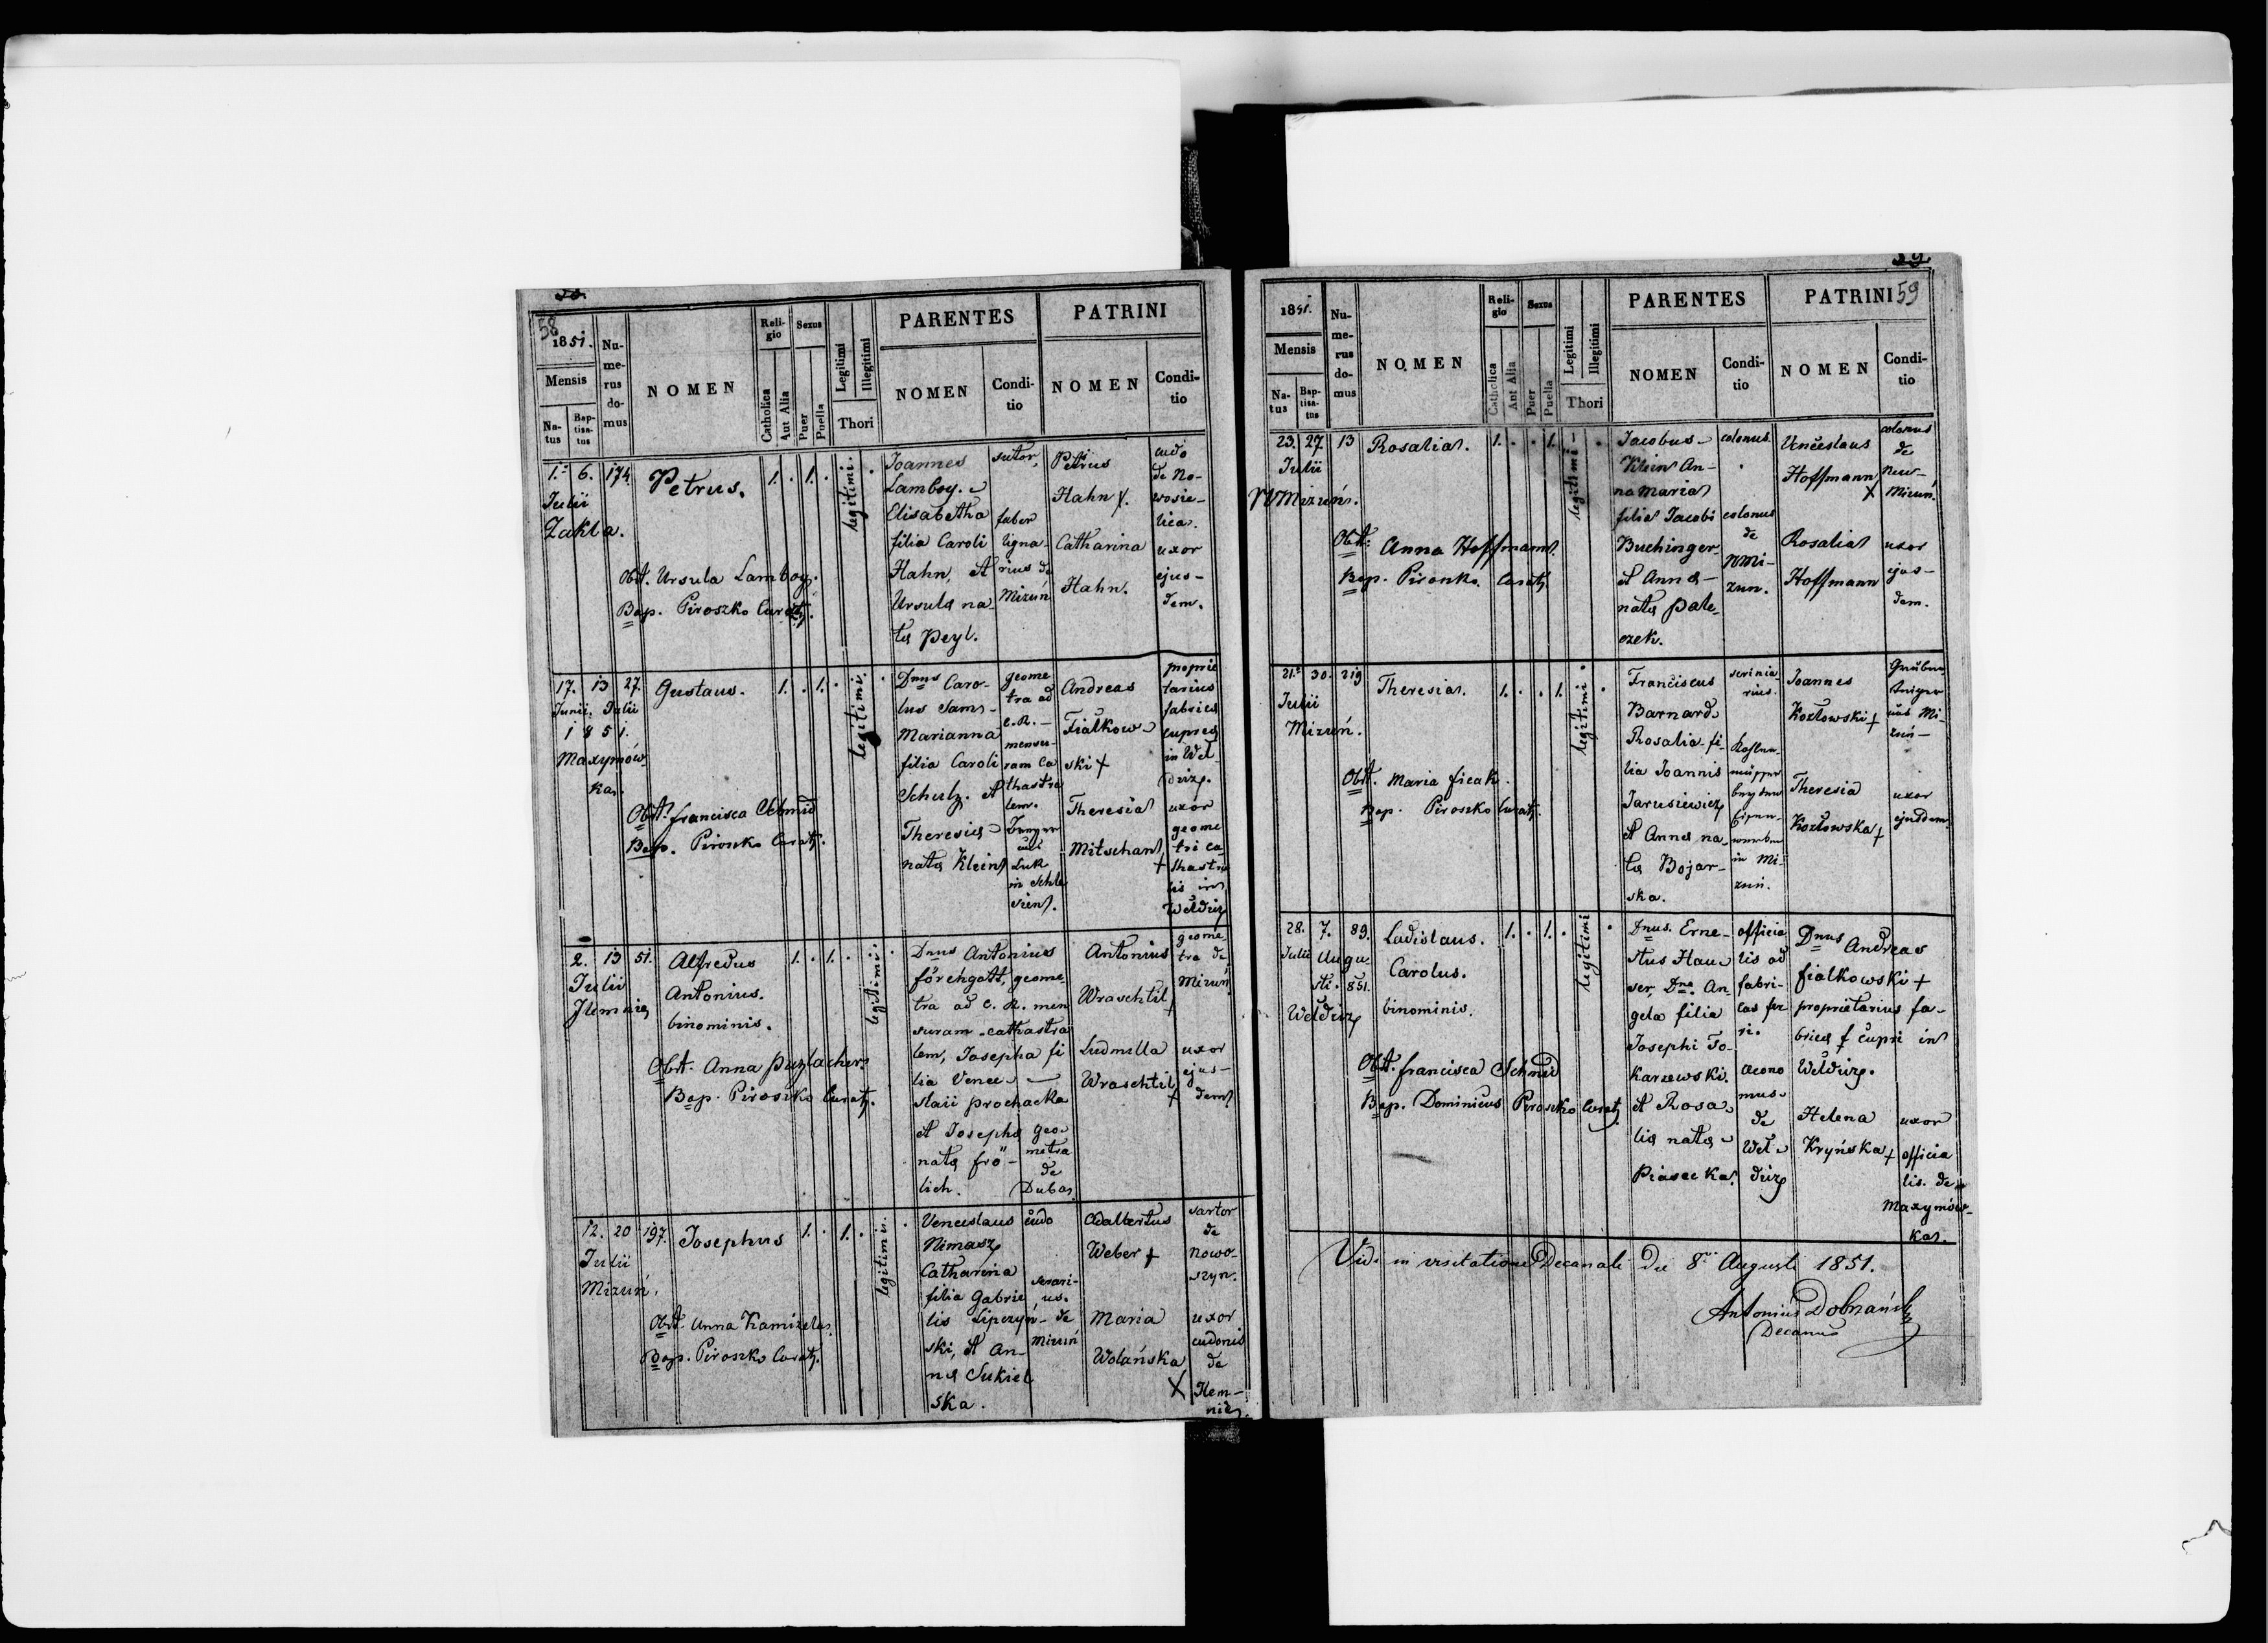 58
1851.
Mensis
Na-
tus
Bap-
tisa-
tus
Nu-
me-
rus
do-
mus
NOMEN
Reli-
gio
Catholica
Aut Alia
Sexus
Puer
Puella
Legitimi
Illegitimi
Thori
PARENTES
NOMEN
Condi-
tio
PATRINI
NOMEN
Condi-
tio
1. 6. 174.
Julii
Zakla.
Petrus.
1. . 1. .
legitimi.
Obst. Ursula Lamboy.
Bap. Piroszko Curatq.
Joannes
Lamboy.
Elisabetha
filia Caroli
Hahn, et
Ursula na-
ta Peyl.
sutor,
faber
ligna-
rius de
Mizuń
Petrus
Hahn X.
Catharina
Hahn.
cudo
de No-
wosie-
lica.
uxor
ejus-
dem.
17. 13 27.
Junii. Julii
1851.
Maxymów-
ka.
Gustaus.
1. . 1. .
legitimi.
Obst. Francisca Schmid
Bap. Piroszko Curatq.
Dnus Caro-
lus Sam
Marianna
filia Caroli
Schulz. et
Theresia
nata Klein
geome
tra ad
C. R.
mensu-
ram Ca
thastra
lem.
in Schle
sien.
Andreas
Fiałkow-
ski +
Theresia
Mitschan
+
proprie
tarius
fabrica
cuprea
in Wel
dziz.
uxor
geome
tri ca
thastra
lis in
Weldziz
2. 13 51.
Julii
Jlemnia
Alfredus
Antonius.
binominis.
1. . 1. .
legitimi.
Obst. Anna Puzlacher.
Bap. Piroszko Curatq.
Dnus Antonius
Förchgott, geome-
tra ad C. R. men
suram cathastra
lem, Josepha fi
lia Vence-
slaii Prochacka
et Josepha
nata Frö-
lich.
geo-
metra
de
Duba.
Antonius
Wraschtil
+
Ludmilla
Wraschtil
+
geome-
tra de
Mizuń
uxor
ejus-
dem
12. 20 197.
Julii
Mizuń.
Josephus
1. . 1. .
legitimi.
Obst. Anna Kamizela.
Bap. Piroszko Curatq.
Venceslaus
Nimasz
Catharina
filia Gabrie
lis Lipczyń-
ski, et An-
na Sukiel
ska.
cudo
de
Mizuń
Adalbertus
Weber +
Maria
Wolańska
X
sartor
de
Nowo-
szyn.
uxor
cudonis
de
Ilem-
nia.
59
1851.
Mensis
Na-
tus
Bap-
tisa-
tus
Nu-
me-
rus
do-
mus
NOMEN
Reli-
gio
Catholica
Aut Alia
Sexus
Puer
Puella
Legitimi
Illegitimi
Thori
PARENTES
NOMEN
Condi-
tio
PATRINI
NOMEN
Condi-
tio
23. 27. 13
Julii
Mizuń.
Rosalia.
1. . . 1.
legitimi
Obst. Anna Hoffmann.
Bap. Piroszko. Curatq.
Jacobus
Klein An-
na Maria
filia Jacobi
Buchinger
et Anna
nata Pale-
czek.
colonus.
colonus
de
NMi-
zun.
Venceslaus
Hoffmann
X
Rosalia
Hoffmann
colonus
de
New-
Mizuń.
uxor
ejus-
dem.
21. 30. 219
Julii
Mizuń.
Theresia.
1. . . 1.
legitimi
Obst. Maria Ficak.
Bap. Piroszko Curatq.
Franciscus
Barnard
Rosalia fi-
lia Joannis
Jarusiewicz
et Anna na-
ta Bojar-
ska.
scrinia
rius.
in Mi-
zuń.
Joannes
Kozłowski +
Theresia
Kozłowska +
Mi-
zuń
uxor
ejusdem.
28. 7. 89.
Julii Augu-
sti. 851.
Weldziz
Ladislaus.
Carolus.
binominis.
1. . 1. .
legitimi
Obst. Francisca Schmid
Bap. Dominicus Piroszko Curatq.
Dnus. Erne-
stus Hau-
ser, Dna. An-
gela filia
Josephi To-
karzewski.
et Rosa-
lia nata
Piasecka.
officia
lis ad
fabri-
cas fer
ri.
oecono
mus
de
Wel-
dziz
Dnus Andreas
Fialkowski +
proprietarius fa-
brica cupri in
Weldziz.
Helena
Kryńska +
uxor
officia
lis. de
Maxymów-
ka.
Vidi in visitatione Decanali die 8 Augusti 1851.
Antonius Dobrzański
Decanus